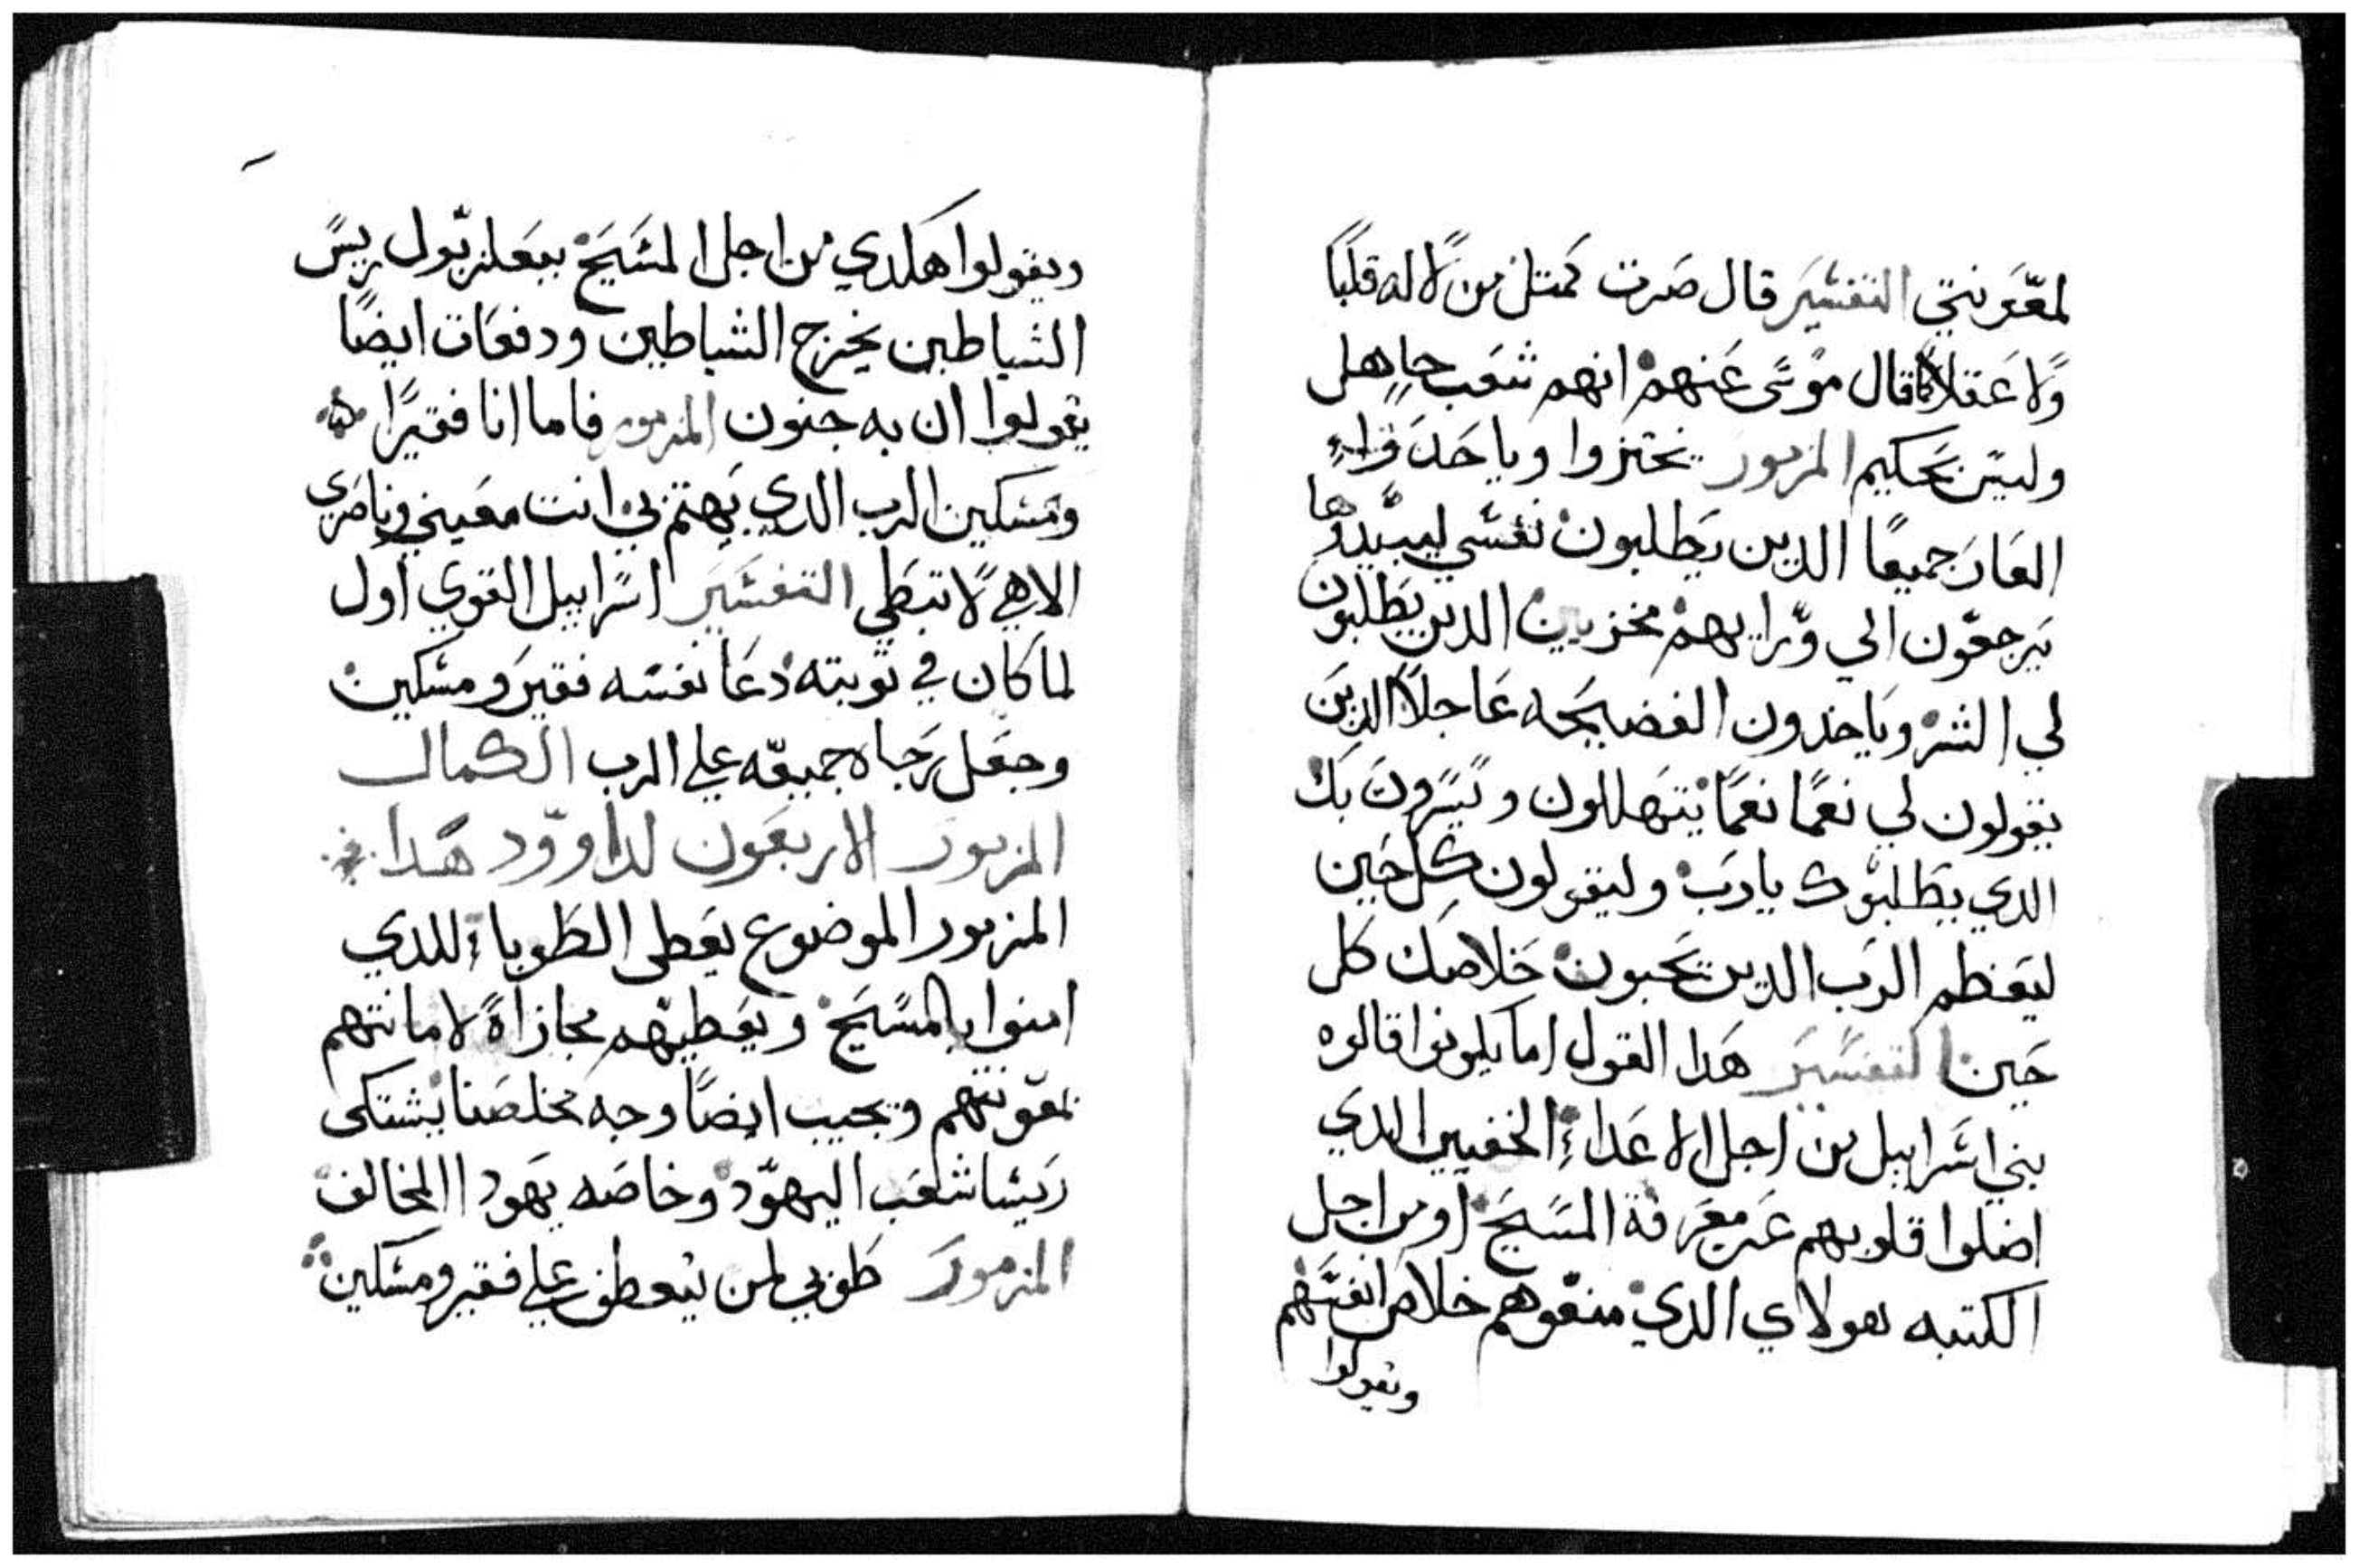 لمعَونتي التفسير قال صَرت كمتل من لا له قلبًا
ولا عَقلا كما قال موسَى عَنهم انهم شَعب جاهل
وليسَ بحكيم المزمور يخَزوا وياخدَوا
العَار جميعًا الدين يَطلبون نفسَي ليبيدوها
يَرجعَون الي وَرايهم مخزيين الدين يَطلبون
لي الشر وياخدون الفضيحَه عَاجلاً الدين
يقولون لي نعمًا نعمًا يتَهللون ويَسَرون بك
الدي يَطلبوك يارب وليقولون كل حَين
ليَعظم الرَب الدين يحَبون خَلاصَك كل
حَين التفسَير هَدا القول اما يكونوا قالوه
بني اسَراييل من اجل الاعَداءِ الخفيين الدي
اضلوا قلوبهم عَن معَرفة المسَيحَ او من اجل
الكتبه هولاي الدي منعَوهم خلاصَ انفسَهم
ويقولوا
ويقولوا هَكدي من اجل المسَيحَ ببعَلزبَول ريسَ
الشياطين يخرج الشياطين ودفعَات ايضًا
يقولوا ان به جنون المزمور فاما انا فقيرًا
ومسَكين الرب الدي يَهتم بي انت معَيني وناصَري
الاهي لا تبطَي التفسَير اسَراييل القوي اول
لما كان في توبته دعَا نفسَه فقيرَ ومسَكين
وجعَل رَجاه جميعَه علي الرب الكمال
المزمور الاربعَون لداوود هَدا
المزمور الموضوع يعَطي الطَوباءِ للدي
امنوا بالمسَيحَ ويعَطيهم مجازاةً لامانتهم
بمعَونتهم ويجيب ايضًا وجه مخلصَنا يشتكي
رَيسَا شعَب اليهوَد وخاصَه يَهودا المخالف
المزمور طَوبي لمن يتعطف علي فقير ومسَكين